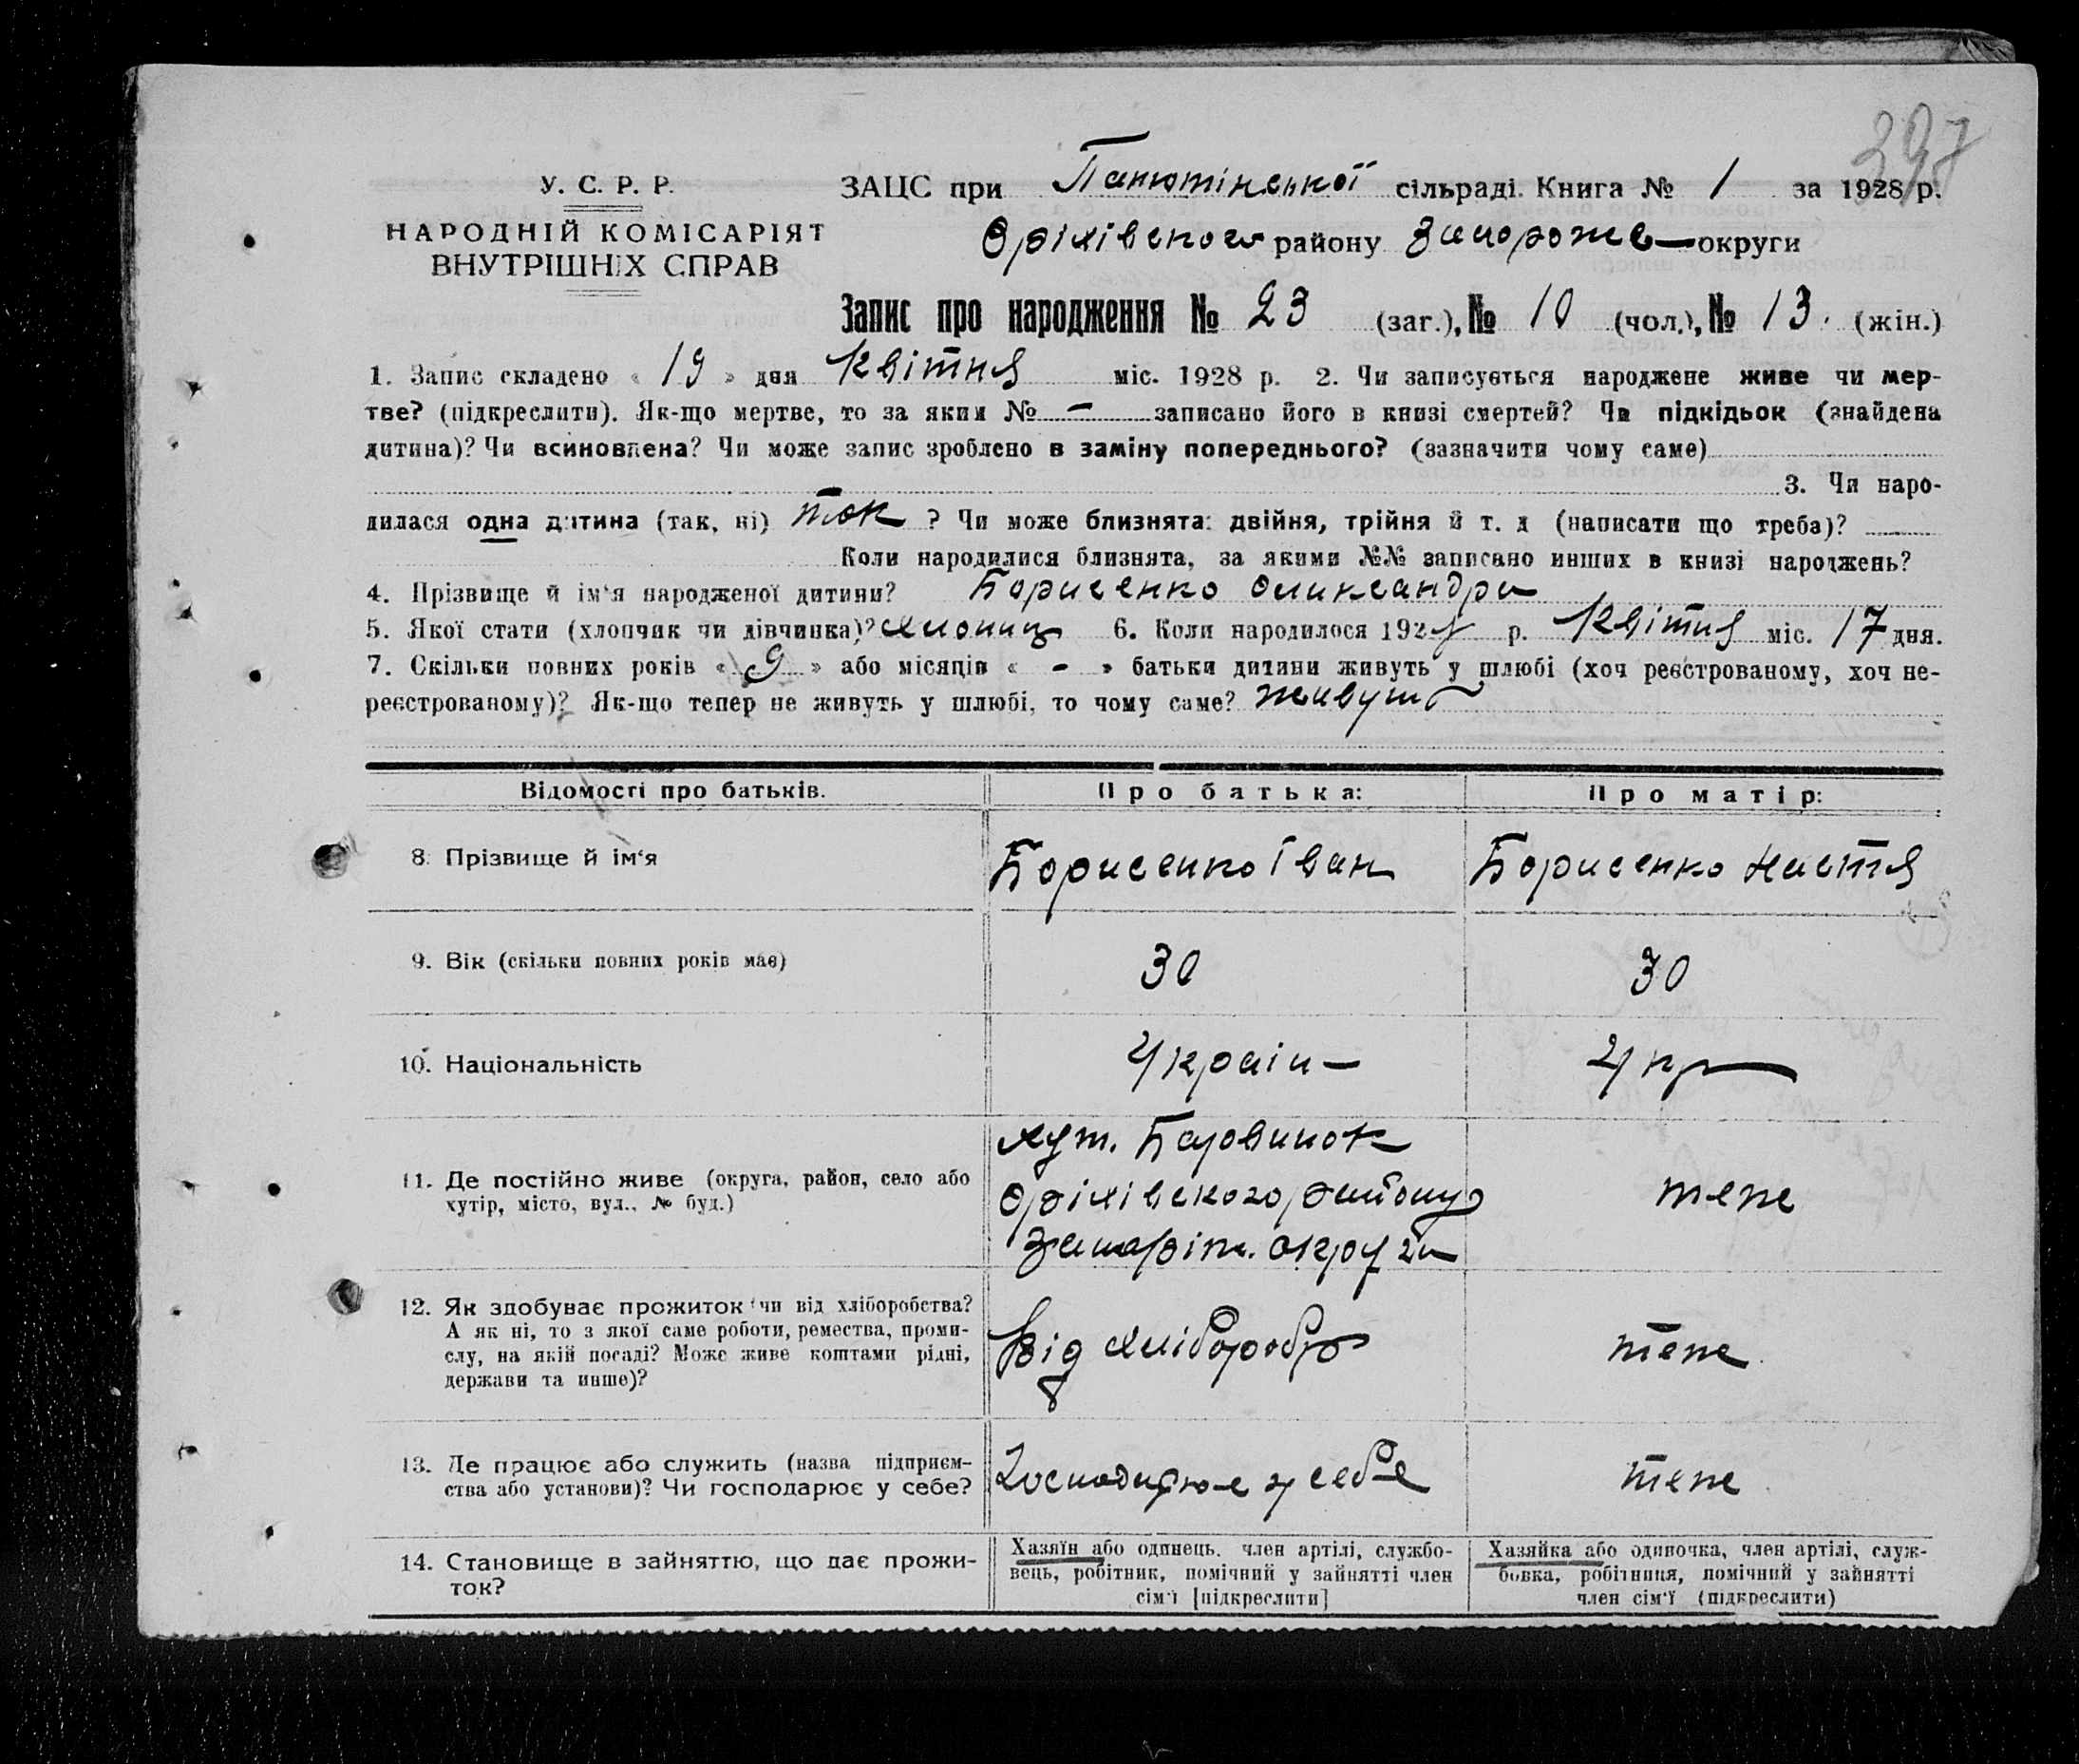 397
У. С. Р. Р.
НАРОДНІЙ КОМІСАРІЯТ
ВНУТРІШНІХ СПРАВ
ЗАЦС при Панютінської сільраді. Книга № 1 за 1928 р.
Оріхівского району Запорожс— округи
Запис про народження № 23 (заг.), № 10 (чол.), № 13. (жін.)
1. Запис складено « 19 » дня Квітня міс. 1928 р. 2. Чи записується народжене живе чи мер-
тве? (підкреслити). Як-що мертве, то за яким № — записано його в книзі смертей? Чи підкідьок (знайдена
дитина)? Чи всиновлена? Чи може запис зроблено в заміну попереднього? (зазначити чому саме)
3. Чи наро-
дилася одна дитина (так, ні) так ? Чи може близнята: двійня, трійня й т. д (написати що треба)?
Коли народилися близнята, за якими №№ записано инших в книзі народжень?
4. Прізвище й ім‘я народженої дитини? Борисенко Олександра
5. Якої стати (хлопчик чи дівчинка)? хлопиц 6. Коли народилося 1928 р. Квітня міс. 17 дня.
7. Скільки повних років « 9 » або місяців « - » батьки дитини живуть у шлюбі (хоч реєстрованому, хоч не-
реєстрованому)? Як-що тепер не живуть у шлюбі, то чому саме? живуть
Відомості про батьків. Про батька: Про матір:
8. Прізвище й ім‘я Борисенко Іван Борисенко Настя
9. Вік (скільки повних років має) 30 30
10. Національність Україн— Укр—
11. Де постійно живе (округа, район, село або
хутір, місто, вул., № буд.)
хут. Барвинок
Оріхівского району
Запоріж. округи
теже
12. Як здобуває прожиток чи від хліборобства?
А як ні, то з якої саме роботи, ремества, проми-
слу, на якій посаді? Може живе коштами рідні,
держави та инше)?
Від хлібороб
теже
13. Де працює або служить (назва підприєм-
ства або установи)? Чи господарює у себе?
Господарює у себе
теже
14. Становище в зайняттю, що дає прожи-
ток?
Хазяїн або одинець, член артілі, службо-
вець, робітник, помічний у зайнятті член
сім‘ї [підкреслити]
Хазяйка або одиночка, член артілі, служ-
бовка, робітниця, помічний у зайнятті
член сім‘ї (підкреслити)